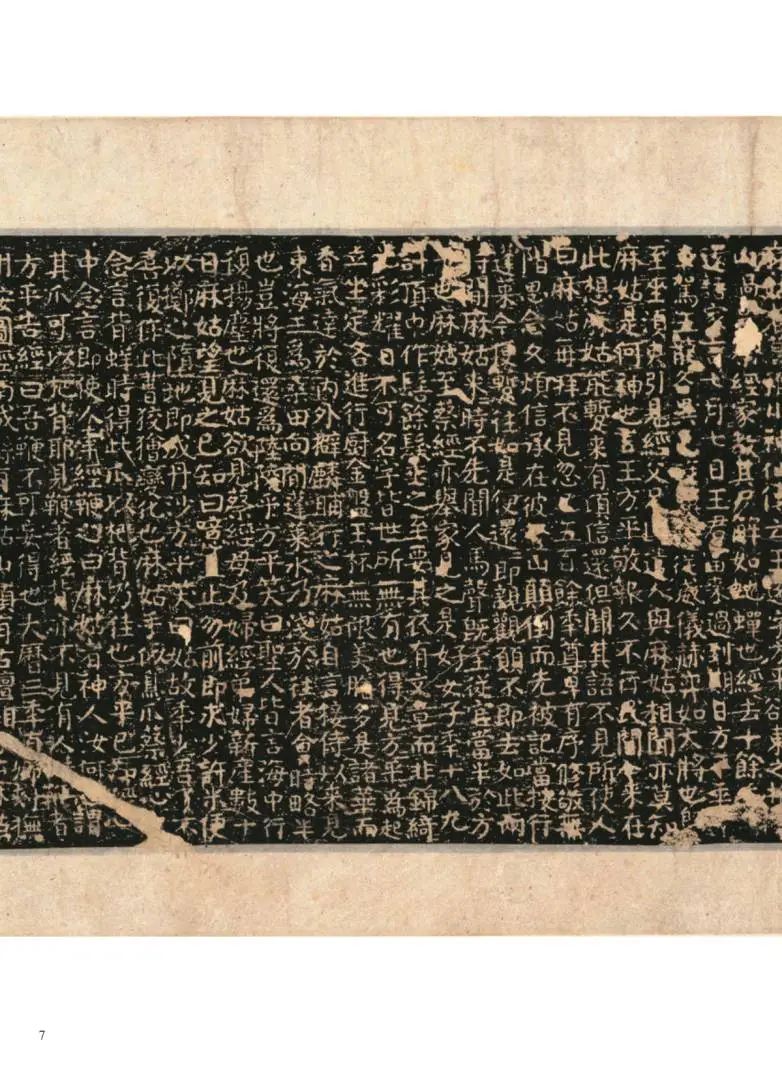 山過經家教其尸解如蛇蟬也經去十餘
還語家言七月七日王君當來過到期日方平乘
車駕五龍各異從威儀赫弈如大將也
至坐須臾引見經父兄遣人與麻姑相聞亦莫知
麻姑是何神也言王方平敬報久不行民間今來在
此想麻姑能暫來有頃信還但聞其語不見所使人
曰麻姑再拜不見忽已五百餘年尊卑有序修敬無
階思念久煩信承在彼山顛倒而先被記當按行
蓬萊今便暫往如是便還即親觀願不即去如此兩
時聞麻姑來時不先聞人馬聲既至從官當半於方
也麻姑至蔡經亦舉家見之是好女子年十八九
許頂中作髻餘髮垂之至要其衣有文章而非錦綺
光彩耀日不可名字皆世所無有也得見方平為起
立坐定各進行廚金盤玉杯無限美膳多是諸華而
香氣達於內外擗麟脯行之麻姑自言接侍以來見
東海三為桑田向間蓬萊水乃淺於往者會時略半
也豈將復還為陸陵乎方平笑曰聖人皆言海中行
復揚塵也麻姑欲見蔡經母及婦經弟婦新產數十
日麻姑望見之已知曰噫且止勿前即求少許米便
以擲之墮地即成丹沙方平笑曰姑故年少吾了不
喜復作此曹狡獪變化也麻姑手似鳥爪蔡經心
念言背蛘時得此爪以杷背乃佳也方平已知經
中念言即使人牽經鞭之曰麻姑者神人汝何忽謂
其爪可以杷背耶見鞭著經背亦不見有人持鞭者
方平告經曰吾鞭不可妄得也大曆三年真卿刺撫
州按圖經南城縣有麻姑山頂有古壇相
7